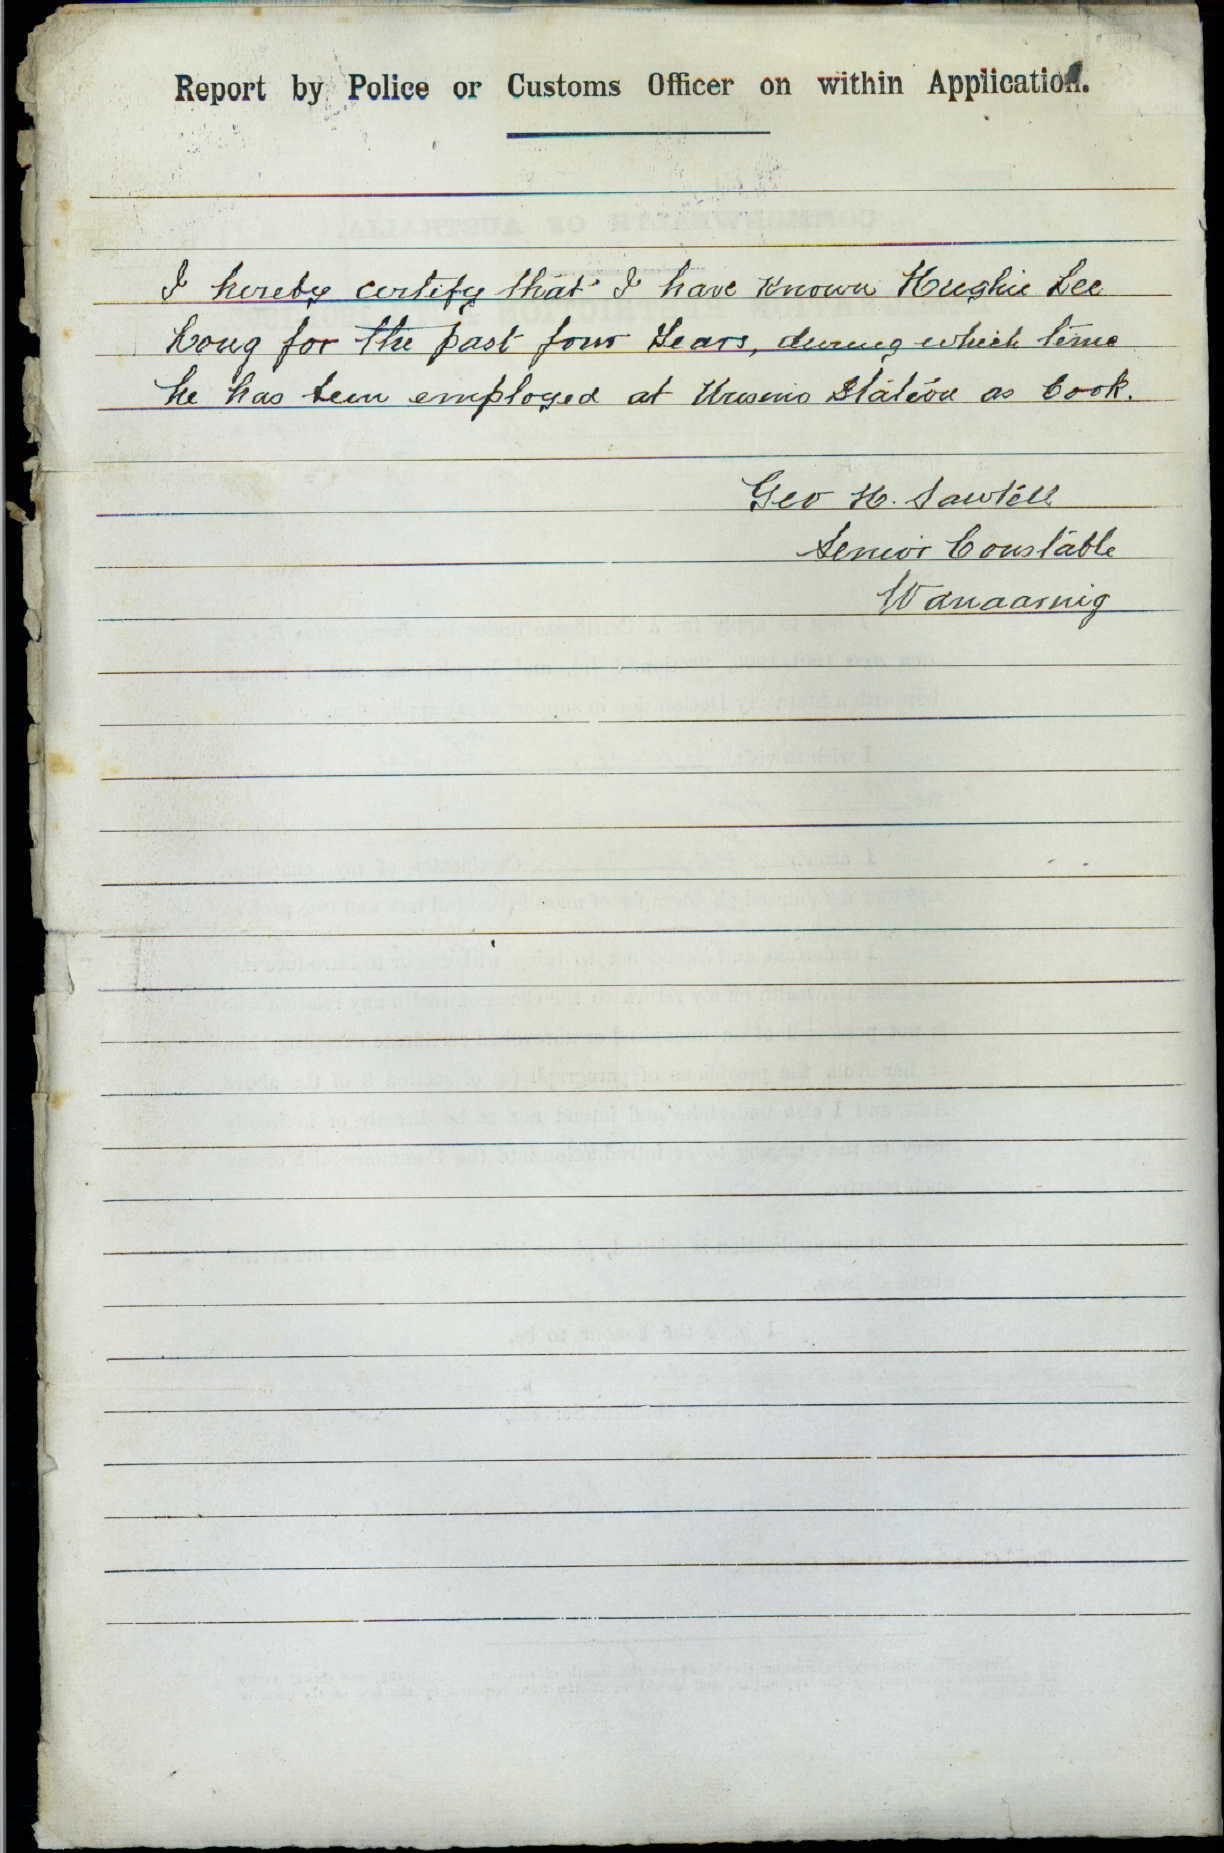 Report by Police or Customs Officer on within Application.
I hereby certify that I have known Hughie Lee
Long for the past four Years, during which time
he has been employed at Urisino Station as Cook.
Geo H. Sawtell
Senior Constable
Wanaaring